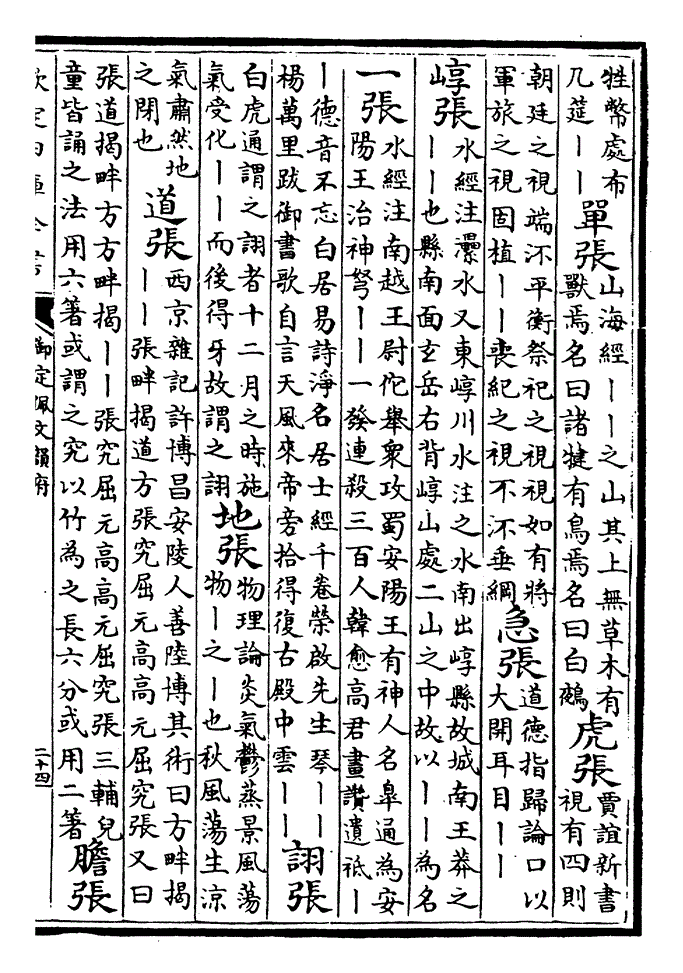 牲幣處布
几筵｜｜
單張
山海經｜｜之山其上無草木有
獸焉名曰諸犍有鳥焉名曰白鵺
虎張
賈誼新書
視有四則
朝廷之視端㳅平衡祭祀之視視如有將
軍旅之視固植｜｜喪紀之視不㳅垂綱
急張
道德指歸論口以
大開耳目｜｜
崞張
水經注灅水又東崞川水注之水南出崞縣故城南王莽之
｜｜也縣南面玄岳右背崞山處二山之中故以｜｜為名
一張
水經注南越王尉佗舉衆攻蜀安陽王有神人名臯通為安
陽王治神弩｜｜一發連殺三百人韓愈高君畫讚遺祗｜
｜德音不忘白居易詩淨名居士經千卷榮啟先生琴｜｜
楊萬里跋御書歌自言天風來帝旁拾得復古殿中雲｜｜
詡張
白虎通謂之詡者十二月之時施
氣受化｜｜而後得牙故謂之詡
地張
物理論炎氣鬱蒸景風蕩
物｜之｜也秋風蕩生涼
氣肅然地
之閉也
道張
西京雜記許博昌安陵人善陸博其術曰方畔揭
｜｜張畔揭道方張究屈元高高元屈究張又曰
張道揭畔方方畔揭｜｜張究屈元高高元屈究張三輔兒
童皆誦之法用六箸或謂之究以竹為之長六分或用二箸
膽張
欽定四庫全書
御定佩文韻府
二十四